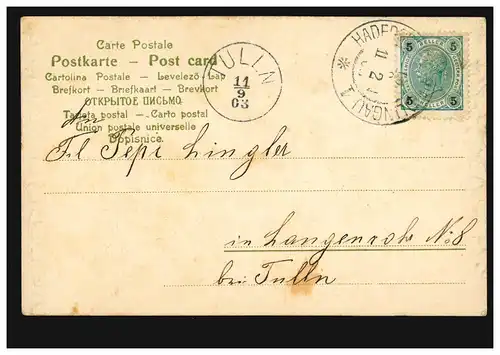 Carte Postale
Postkarte – Post card
Cartolina Postale – Levelező-Lap
Brefkort – Briefkaart – Brevkort
ОТКРЫТОЕ ПИСЬМО
Tarjeta postal – Carto postal
Union postale universelle
Dopisnice.
TULLN
11
9
03
5 5
HELLER
5 5
An
Frl Pepi Lingler
in Langenrohr No 8
bei Tulln